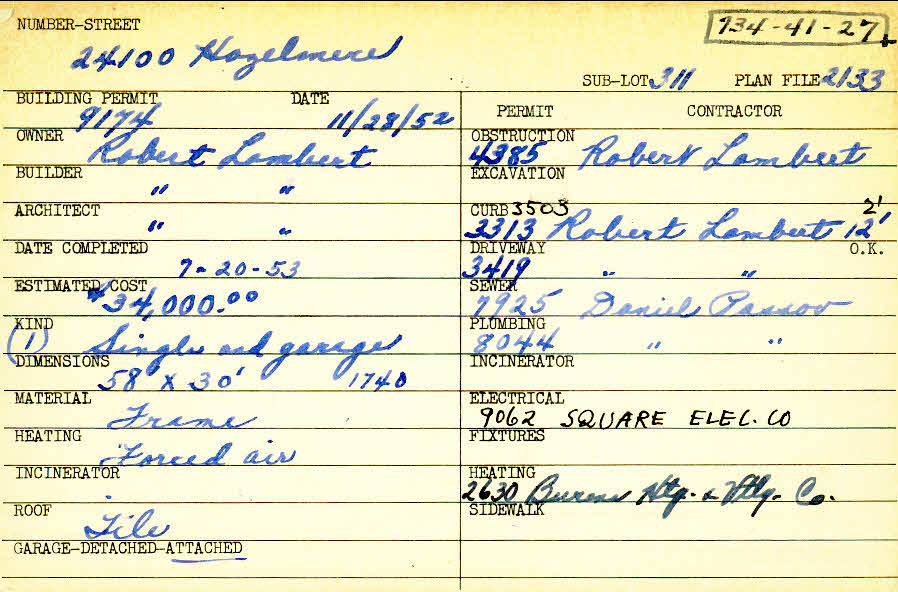 NUMBER-STREET
734-41-27
24100 Hazelmere
SUB-LOT 311 PLAN FILE 2133
BUILDING PERMIT DATE
9174 11/28/52
OWNER
Robert Lambert
BUILDER
" "
ARCHITECT
" "
DATE COMPLETED
7-20-53
ESTIMATED COST
$34,000.00
KIND
(1) Single and garage
DIMENSIONS
58' x 30' 1740
MATERIAL
Frame
HEATING
Forced air
INCINERATOR
ROOF
Tile
GARAGE-DETACHED-ATTACHED
PERMIT CONTRACTOR
OBSTRUCTION
4385 Robert Lambert
EXCAVATION
CURB 3503 2'
3313 Robert Lambert 12'
DRIVEWAY O.K.
3419 " "
SEWER
7925 Daniel Passov
PLUMBING
8044 " "
INCINERATOR
ELECTRICAL
9062 SQUARE ELEC. CO
FIXTURES
HEATING
2630 Htg. & Vtlg. Co.
SIDEWALK